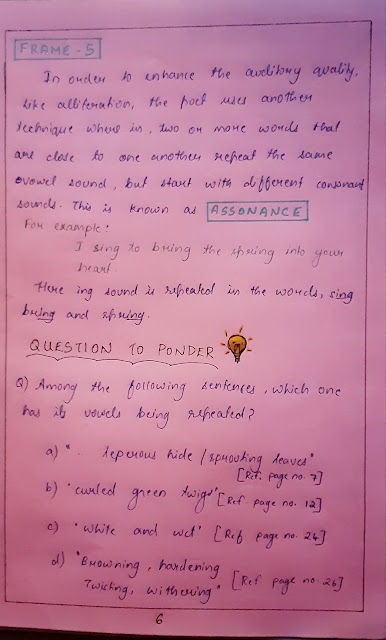 FRAME - 5
In order to enhance the auditory quality,
like alliteration, the poet uses another
technique where in, two or more words that
are close to one another repeat the same
vowel sound, but start with different consonant
sounds. This is known as ASSONANCE
For example:
I sing to bring the spring into your
heart.
Here ing sound is repeated in the words, sing
bring and spring.
QUESTION TO PONDER
Q) Among the following sentences, which one
has its vowels being repeated?
a) ". leperous hide / sprouting leaves"
[Ref. page no. 7]
b) "curled green twigs" [Ref. page no. 12]
c) "white and wet" [Ref page no. 24]
d) "Browning, hardening
Twisting, withering" [Ref page no. 26]
6